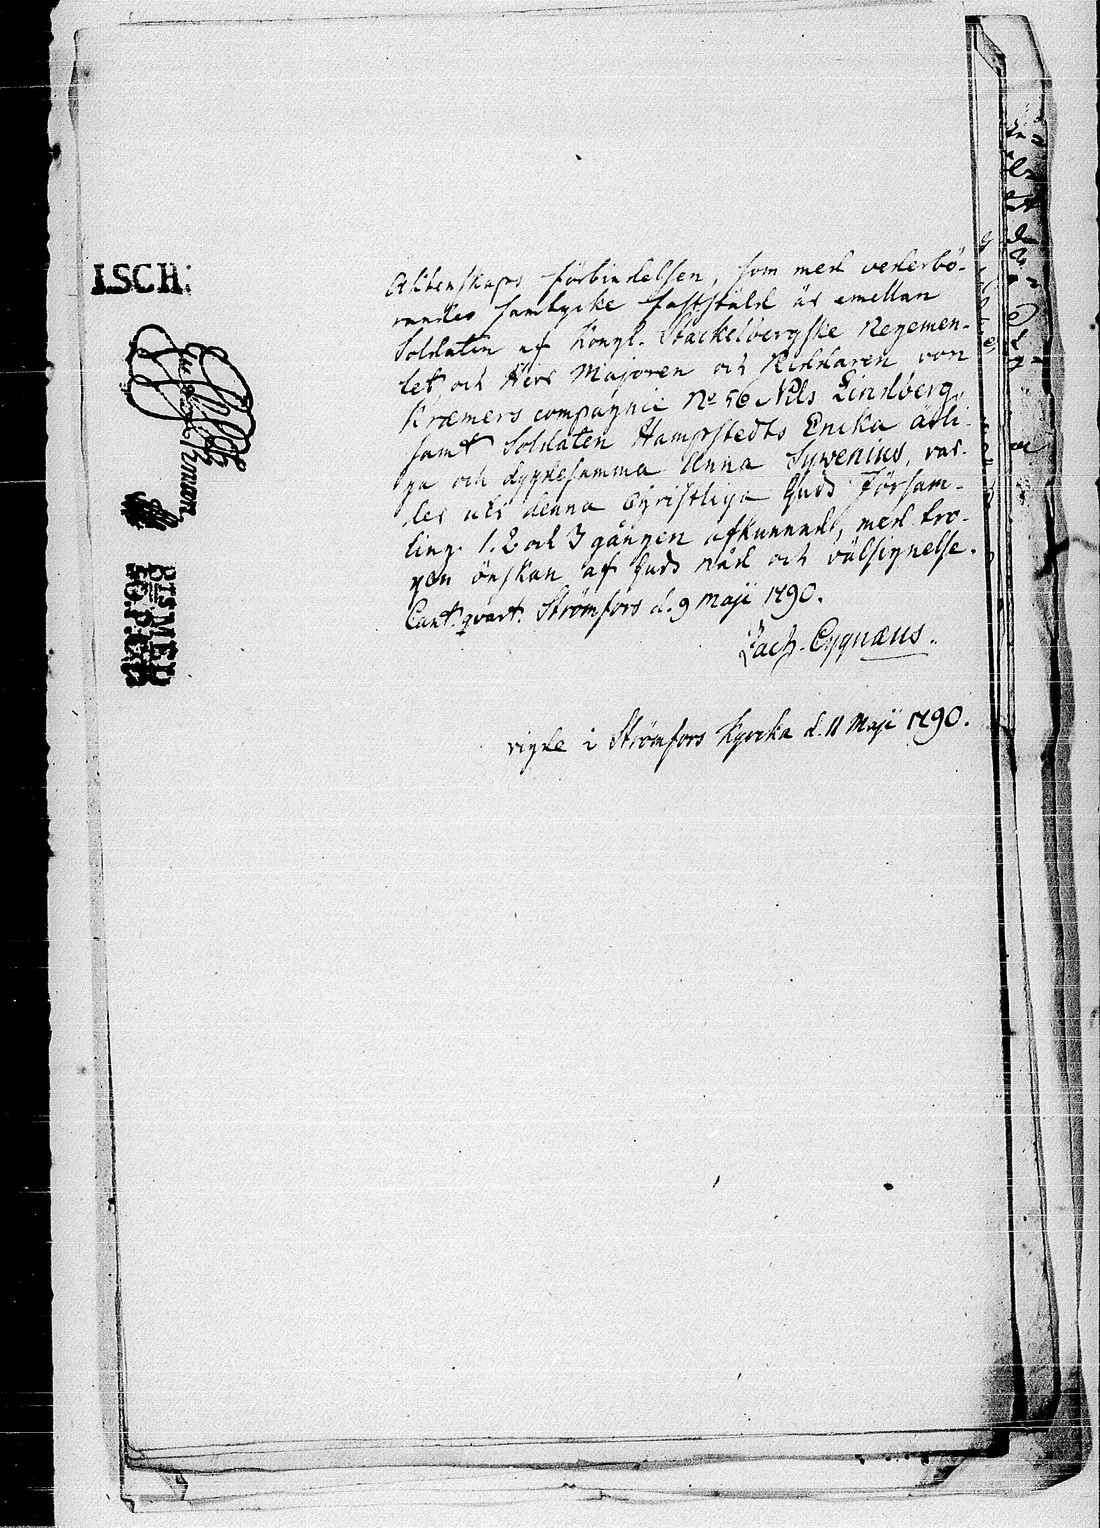 I.SCH:
Äktenskaps förbindelsen, som med vederbö-
randes samtycke faststäld är emellan
Soldaten af Kongl. Stackelbergske Regemen-
tet och Herr Majoren och Riddaren von
Kræmers compagnie No 56 Nils Lindberg,
samt Soldaten Hampstedts Encka ärli-
ga och dygdesamma Anna Sywenius, var-
der uti denna Christliga Guds Försam-
ling 1. 2 och 3 gången afkunnad, med tro-
gen önskan af Guds nåd och välsignelse.
Cant. qvart. Strømfors d. 9 Maji 1790.
Zach. Cygnæus.
vigde i Strömfors Kyrcka d. 11 Maji 1790.